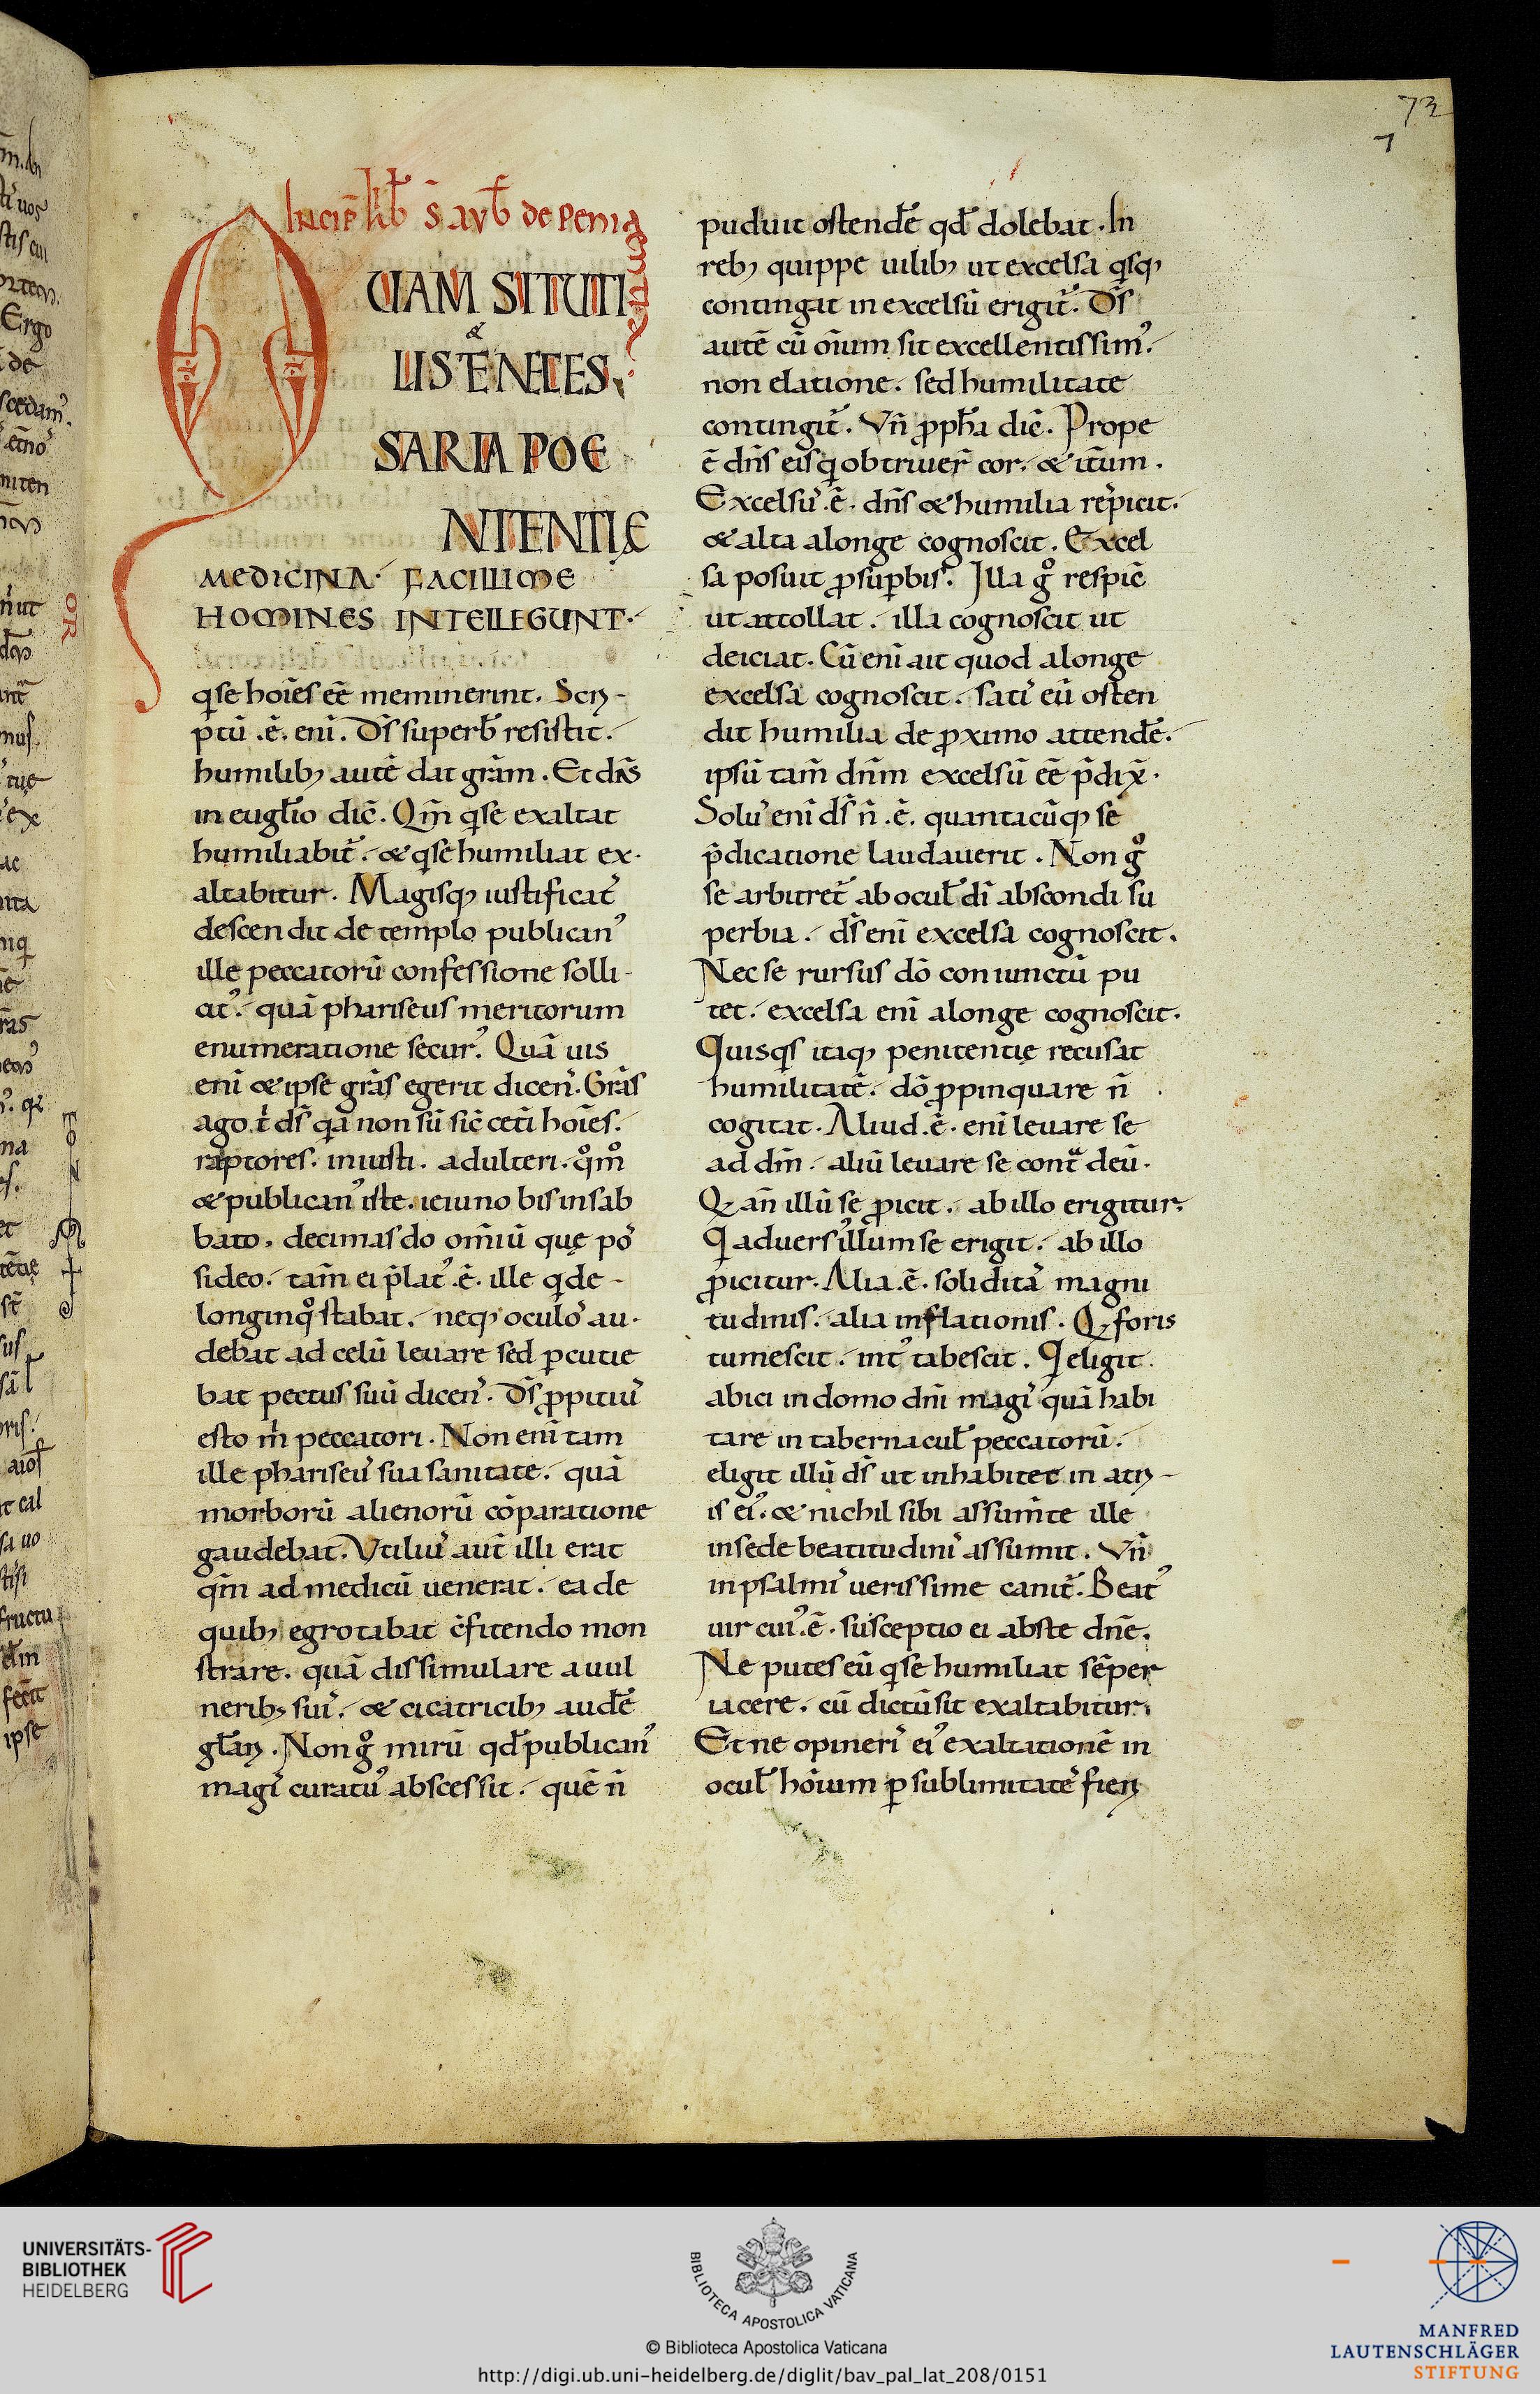 73
7
Incip̄ lib̄ s̄ auḡ de penitentia
QUAM SIT UTI
LIS & NECES
SARIA POE
NITENTIĘ
MEDICINA· FACILLIME
HOMINES INTELLEGUNT·
q̣ se hoīes eē meminerint. Scri-
ptū .ē. enī. D̄s superb̄ resistit.
humilib; autē dat grām. Et dn̄s
in eugl̄io dic̄. Qm̄ q̣ se exaltat
humiliabit̄. & q̣ se humiliat ex-
altabitur. Magisq; iustificat᷒
descendit de templo publican᷒
ille peccatorū confessione solli-
cit᷒. quā phariseus meritorum
enumeratione secur᷒. Quā uis
enī & ipse grās egerit dicen᷒. Grās
ago t̄ d̄s q̣a non sū sic̄ cet̄i hoīes.
raptores. iniusti. adulteri. qͦm̊
& publican᷒ iste. ieiuno bis in sab
bato. decimas do om̄iū quę po᷒
sideo. tam̄ ei p̄lat᷒ .ē. ille q̣ de-
longinqͦ stabat. neq; oculo᷒ au-
debat ad celū leuare sed ꝑcutie
bat pectus suū dicen᷒. D̄s ꝓpitiu᷒
esto m̄ peccatori. Non enī tam
ille phariseu᷒ sua sanitate. quā
morborū alienorū cōparatione
gaudebat. Vtiliu᷒ aut̄ illi erat
qm̄ ad medicū uenerat. ea de
quib; egrotabat c̄fitendo mon
strare. quā dissimulare a uul
nerib; sui᷒. & cicatricib; audē
gl̄ari. Non gͦ mirū qd̄ publican᷒
magi᷒ curatu᷒ abscessit. quē n̄
puduit ostendē qd̄ dolebat. In
reb; quippe uilib; ut excelsa q̣sq;
contingat in excelsū erigit̄. D̄s
autē cū om̄ium sit excellentissim᷒.
non elatione. sed humilitate
contingit̄. Vn̄ ꝓpha dic̄. Prope
ē dn̄s eis q̣ obtriuer̄ cor. & it̄um.
Excelsu᷒ .ē. dn̄s & humilia re᷒picit.
& alta a longe cognoscit. Excel
sa posuit ꝓ suꝑbis. Illa gͦ respic̄
ut attollat. illa cognoscit ut
deiciat. Cū enī ait quod a longe
excelsa cognoscit. sati᷒ eū osten
dit humilia de ꝓximo attendē.
ipsū tam̄ dn̄m excelsū eē p̄dix̄.
Solu᷒ enī d̄s n̄ .ē. quantacūq; se
p̄dicatione laudauerit. Non gͦ
se arbitret̄ ab ocul̄ dī abscondi su
perbia. d̄s enī excelsa cognoscit.
Nec se rursus dō coniunctū pu
tet. excelsa enī a longe cognoscit.
Quisq̣s itaq; penitentię recusat
humilitatē. dō ꝓpinquare n̄
cogitat. Aliud .ē. enī leuare se
ad dm̄. aliū leuare se contͣ deū.
Q; an̄ illū se ꝓicit. ab illo erigitur.
Q̣ aduers᷒ illum se erigit. ab illo
ꝓicitur. Alia .ē. solidita᷒ magni
tudinis. alia inflationis. Q; foris
tumescit. int᷒ tabescit. Q̣ eligit
abici in domo dn̄i magi᷒ quā habi
tare in tabernacul̄ peccatorū.
eligit illū d̄s ut inhabitet in atri-
is ei᷒. & nichil sibi assum̄te ille
in sede beatitudini᷒ assumit. Vn̄
in psalmi᷒ uerissime canit̄. Beat᷒
uir cui᷒ .ē. susceptio ei abs te dn̄e.
Ne putes eū q̣ se humiliat sēper
iacere. cū dictū sit exaltabitur.
Et ne opineri᷒ ei᷒ exaltationē in
ocul̄ hōium ꝑ sublimitate᷒ fieri
UNIVERSITÄTS-
BIBLIOTHEK
HEIDELBERG
BIBLIOTECA APOSTOLICA VATICANA
© Biblioteca Apostolica Vaticana
http://digi.ub.uni-heidelberg.de/diglit/bav_pal_lat_208/0151
MANFRED
LAUTENSCHLÄGER
STIFTUNG